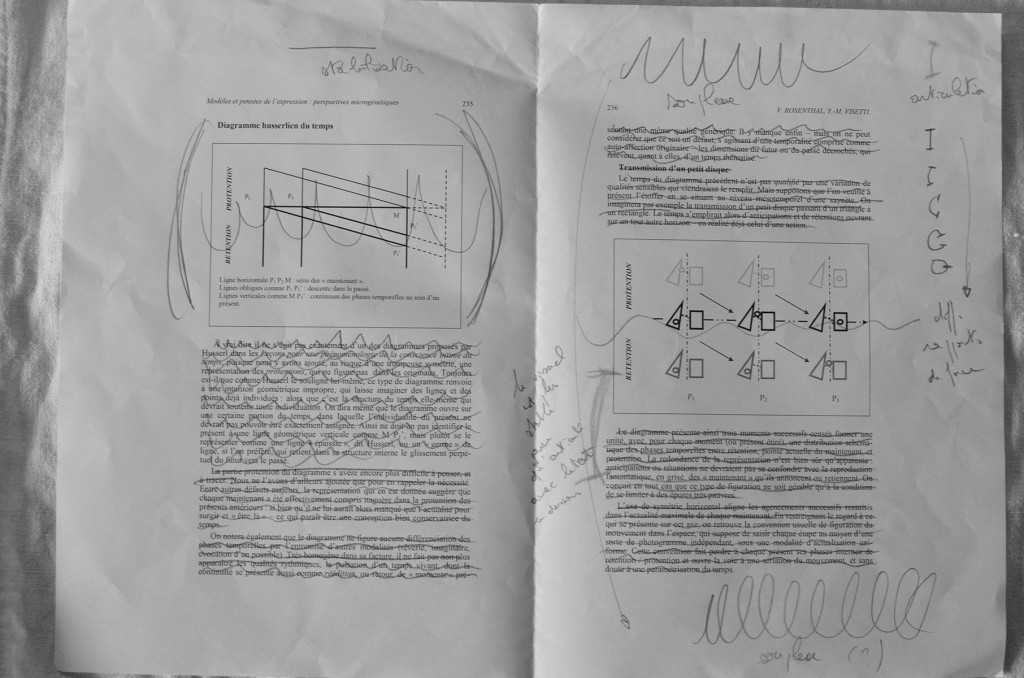 stabilisation
Modèles et pensées de l'expression : perspectives microgénétiques
235
Diagramme husserlien du temps
PROTENTION
RETENTION
P₁
P₂
M
P₁'
Ligne horizontale P₁ P₂ M : série des « maintenant ».
Lignes obliques comme P₁ P₁' : descente dans le passé.
Lignes verticales comme M P₁' : continuum des phases temporelles au sein d'un
présent.
À vrai dire il ne s'agit pas exactement d'un des diagrammes proposés par
Husserl dans les leçons pour une phénoménologie de la conscience intime du
temps, puisque nous y avons ajouté, au risque d'une trompeuse symétrie, une
représentation des protentions, qui ne figure pas dans les originaux. Toujours
est-il que comme Husserl le souligne lui-même, ce type de diagramme renvoie
à une intuition géométrique impropre, qui laisse imaginer des lignes et des
points déjà individués : alors que c'est la structure du temps elle-même qui
devrait soutenir toute individuation. On dira même que le diagramme ouvre sur
une certaine portion du temps, dans laquelle l'individualité du présent ne
devrait pas pouvoir être exactement assignée. Ainsi ne doit-on pas identifier le
présent à une ligne géométrique verticale comme M P₁', mais plutôt se le
représenter comme une ligne « épaissie », dit Husserl, ou un « germe » de
ligne, si l'on préfère, qui retient dans sa structure interne le glissement perpé-
tuel du futur vers le passé.
La partie protention du diagramme s'avère encore plus difficile à penser, et
à tracer. Nous ne l'avons d'ailleurs ajoutée que pour en rappeler la nécessité.
Entre autres défauts majeurs, la représentation qui en est donnée suggère que
chaque maintenant a été effectivement compris naguère dans la protention des
présents antérieurs : si bien qu'il ne lui aurait alors manqué que l'actualité pour
surgir et « être là » – ce qui paraît être une conception bien conservatrice du
temps.
On notera également que le diagramme ne figure aucune différenciation des
phases temporelles par l'entremise d'autres modalités (rêverie, imaginaire,
évocation d'un possible). Très homogène dans sa facture, il ne fait pas non plus
apparaître les qualités rythmiques, la pulsation d'un temps vivant, dont la
continuité se présente aussi comme révolution, ou retour, de « moments » pré-
souplesse
236
V. ROSENTHAL, Y.-M. VISETTI
sentant une même qualité générique. Il y manque enfin – mais on ne peut
considérer que ce soit un défaut, s'agissant d'une temporalité comprise comme
auto-affection originaire – les dimensions du futur ou du passé décrochés, qui
relèvent, quant à elles, d'un temps thématisé.
Transmission d'un petit disque
Le temps du diagramme précédent n'est pas qualifié par une variation de
qualités sensibles qui viendraient le remplir. Mais supposons que l'on veuille à
présent l'étoffer en se situant au niveau mésotemporel d'une saynète. On
imaginera par exemple la transmission d'un petit disque passant d'un triangle à
un rectangle. Le temps s'emplirait alors d'anticipations et de rétentions ouvrant
sur un tout autre horizon – en réalité déjà celui d'une action.
PROTENTION
RETENTION
P₁
P₂
P₃
Le diagramme présente ainsi trois moments successifs censés former une
unité, avec, pour chaque moment (ou présent étiré), une distribution schéma-
tique des phases temporelles entre rétention, pointe actuelle du maintenant, et
protention. La redondance de la représentation n'est bien sûr qu'apparente :
anticipations ou rétentions ne devraient pas se confondre avec la reproduction
fantomatique, en grisé, des « maintenant » qu'ils annoncent ou retiennent. On
conçoit en tout cas que ce type de figuration ne soit gérable qu'à la condition
de se limiter à des épures très pauvres.
L'axe de symétrie horizontal aligne les agencements successifs ressaisis
dans l'actualité maximale de chaque maintenant. En restreignant le regard à ce
qui se présente sur cet axe, on retrouve la convention usuelle de figuration du
mouvement dans l'espace, qui suppose de saisir chaque étape au moyen d'une
sorte de photogramme indépendant, sous une modalité d'actualisation uni-
forme. Cette convention fait perdre à chaque présent ses phases internes de
rétention / protention et ouvre la voie à une sériation du mouvement, et sans
doute à une paramétrisation du temps.
articulation
diff.
rapports
de force
souplesse (^)